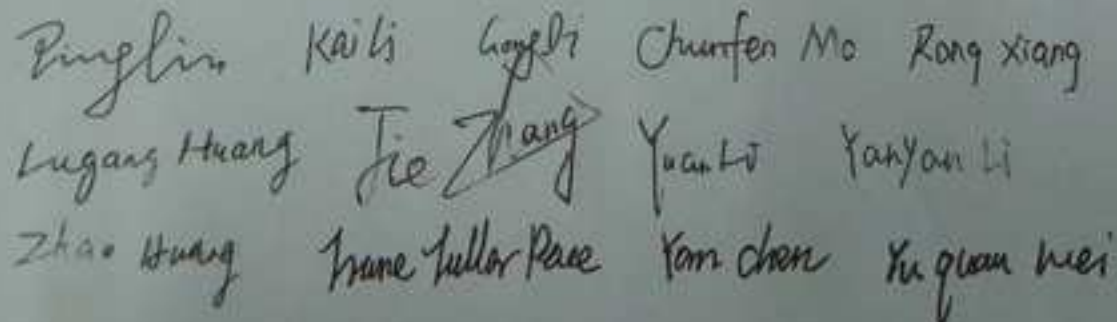 Ping Lin Kai Li Hong Li Chunfen Mo Rong xiang
Lugang Huang Jie Zhang Yuan Li Yanyan Li
Zhao Huang Frane Fuller Pace Yan chen Yu quan wei